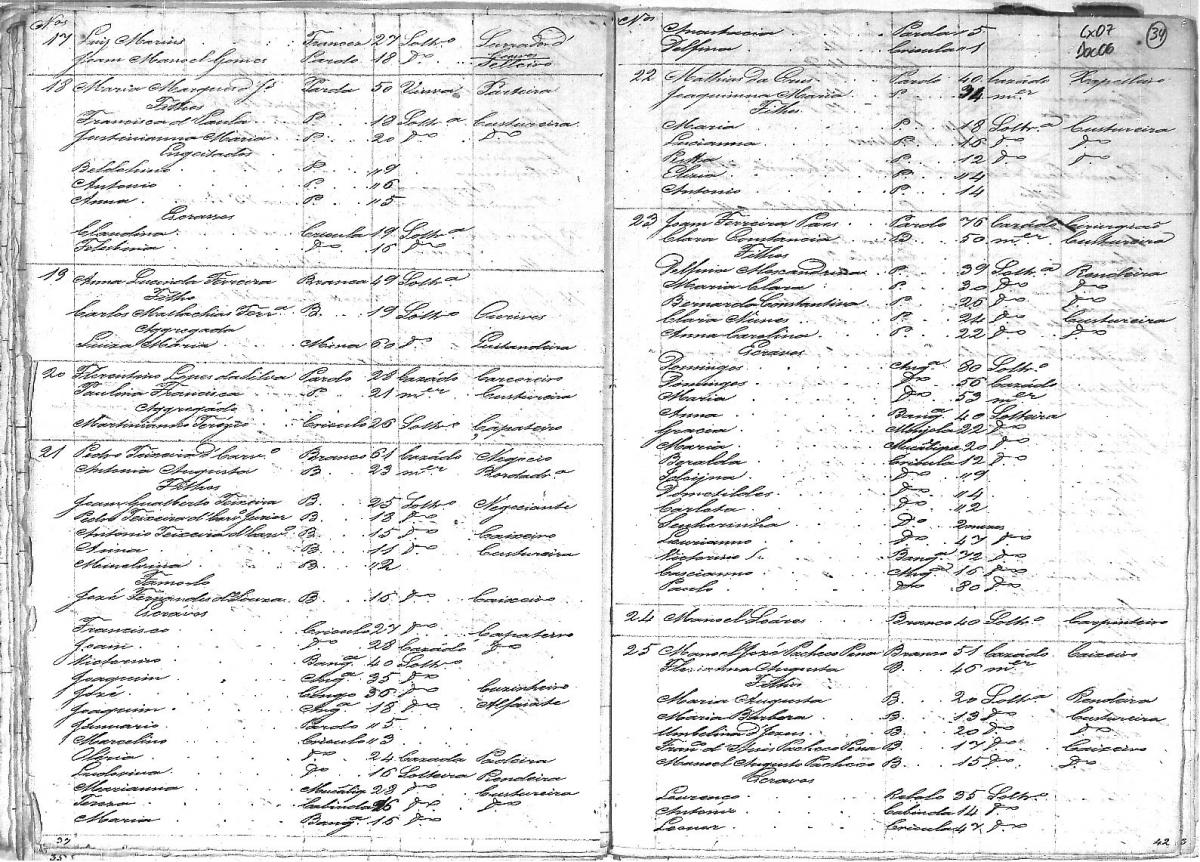 Nos
17 Luiz Marius Francez 27 Soltro
Joam Manoel Gomes Pardo 18 do
18 Maria Marques 50 Viuva Parteira
Filhos
Francisca d'Paula P. 10 Soltra Custureira
Justinianna Maria P. 20 do do
Engeitados
P. 9
Antonio P. 6
Anna P. 5
Escravos
Claudina Crioula 19 Soltra
do 16 do
19 Anna Lucinda Ferreira Branca 49 Soltra
Filho
Carlos Mallachias Ferra B. 19 Soltro Ourives
Aggregada
Luiza Maria Mina 60 do Quitandeira
20 Florentino Lopes da Silva Pardo 28 Cazado Carcereiro
Paulina Francisca P. 21 mer Custureira
Aggregado
Crioulo 26 Soltro Çapateiro
21 Pedro Teixeira d'Carvo Branco 61 Cazado Negocio
Antonia Augusta B. 23 mer Bordada
Filhos
Joam Gualberto Teixeira B. 25 Soltro Negociante
Pedro Teixeira d'Caro Junior B. 18 do
Antonio Teixeira d'Caro B. 15 do Caixeiro
Anna B. 11 do Custureira
B. 2
Famulo
Jozé Fernandes d'Souza B. 15 do Caixeiro
Escravos
Francisco Crioulo 27 do Çapatero
Joam do 28 Cazado do
Victorino Bangª 40 Soltro
Joaquim Angª 35 do
Jozé Congo 36 do Cuzinheiro
Joaquim Angª 18 do Alfaiate
Januario Pardo 5
Marcelino Crioulo 3
Olivia do 24 Cazada Padeira
Ludovina do 16 Solteira Rendeira
Marianna 23 do Custureira
Tereza Cabinda 26 do do
Maria Bangª 15 do
Nos
Anastacia Parda 5
Delfina Crioula 1
Cx07
Doc06
39
22 Mathias da Pardo 40 Cazado
Joaquimna Maria P. 34 mer
Filhos
Maria P. 18 Soltra Custureira
Lucianna P. 15 do do
Ritta P. 12 do do
Elizia P. 4
Antonio P. 14
23 Joam Ferreira Pardo 76 Cazado Cirurgião
Clara Constancia P. 50 mer Custureira
Filhos
Delfina Alexandrina P. 39 Soltra Rendeira
Maria Clara P. 30 do do
Bernarda Constantina P. 26 do do
Clara Nunes P. 24 do Custureira
Anna Carolina P. 22 do do
Escravos
Domingos Angª 80 Soltro
Domingos do 56 Cazado
Maria do 53 mer
Anna Bangª 40 Solteira
Gracia 22 do
Maria 20 do
Beralda Crioula 12 do
do 9
Demetildes do 4
Carlota do 2
Senhorinha do 2 mezes
Laurianno do 47 do
Victorino Bangª 72 do
Cascianno Angª 16 do
Paulo do 80 do
24 Manoel Soáres Branco 40 Soltro Carpinteiro
25 Manoel Jozé Pacheco Pena Branco 51 Cazado Caixeiro
Florianna Augusta B. 46 mer
Filhos
Maria Augusta B. 20 Soltra Rendeira
Maria Barbora B. 13 do Custureira
Umbelina d'Jezus B. 20 do do
Franco d'Assis Pacheco Pena B. 17 do Caixeiro
Manoel Augusto Pacheco B. 15 do do
Escravos
Lourenço Rebolo 35 Soltro
Antonio Cabinda 14 do
Leonor Crioula 47 do
42